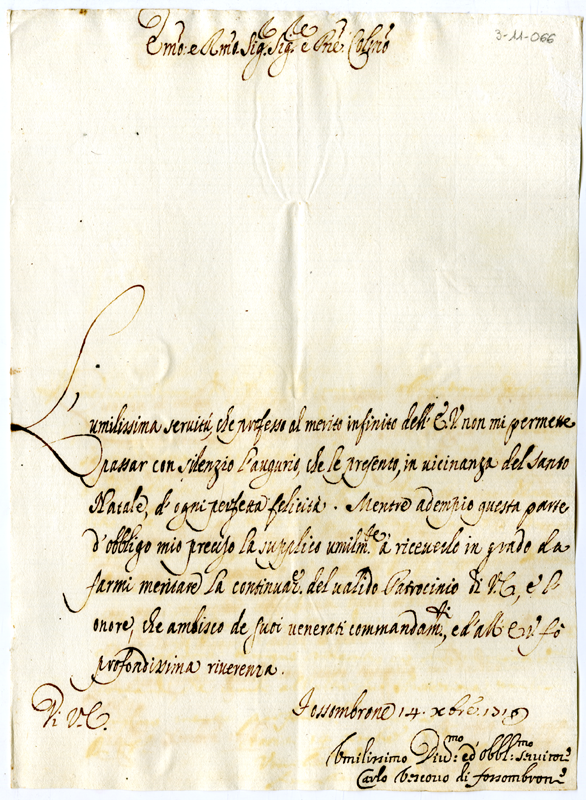 3-11-066
Emo: e Rmo. Sig.r Sig.re e Pne Colmo
L'umilissima servitù, che professo al merito infinito dell' E.V. non mi permette
passar con silenzio l'augurio, che le presento, in vicinanza del santo
Natale, d'ogni perfetta felicità. Mentre adempio questa parte
d'obbligo mio preciso la supplico umilm.te à riceverlo in grado da
farmi meritare la continuaz.e del valido Patrocinio di V.E., e l'
onore, che ambisco de suoi venerati commandam.ti, ed all' E.V. fò
profondissima riverenza.
Di V.E.
Fossombrone 14. Xbre.
Umilissimo Div.mo ed obbl.mo servitor
Carlo Vescovo di fossombrone